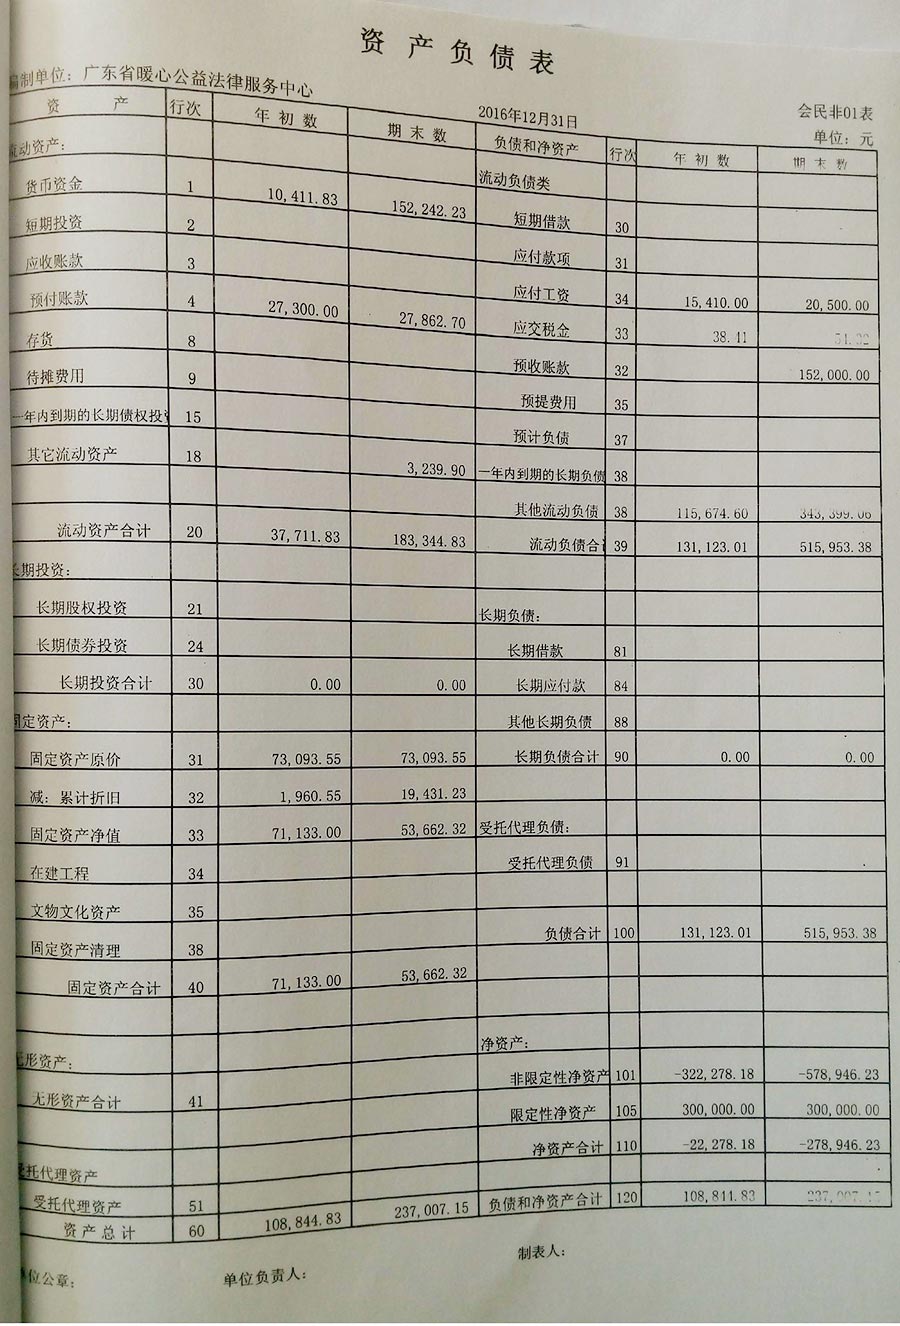 资产负债表
编制单位：广东省暖心公益法律服务中心 2016年12月31日 会民非01表
单位：元
资 产 行次 年初数 期末数 负债和净资产 行次 年初数 期末数
流动资产： 流动负债类
货币资金 1 10,411.83 152,242.23 短期借款 30
短期投资 2 应付款项 31
应收账款 3 应付工资 34 15,410.00 20,500.00
预付账款 4 27,300.00 27,862.70 应交税金 33 38.41
存货 8 预收账款 32 152,000.00
待摊费用 9 预提费用 35
一年内到期的长期债权投资 15 预计负债 37
其它流动资产 18 3,239.90 一年内到期的长期负债 38
其他流动负债 38 115,674.60 343,399.06
流动资产合计 20 37,711.83 183,344.83 流动负债合计 39 131,123.01 515,953.38
长期投资：
长期股权投资 21 长期负债：
长期债券投资 24 长期借款 81
长期投资合计 30 0.00 0.00 长期应付款 84
固定资产： 其他长期负债 88
固定资产原价 31 73,093.55 73,093.55 长期负债合计 90 0.00 0.00
减：累计折旧 32 1,960.55 19,431.23
固定资产净值 33 71,133.00 53,662.32 受托代理负债：
在建工程 34 受托代理负债 91
文物文化资产 35
固定资产清理 38 负债合计 100 131,123.01 515,953.38
固定资产合计 40 71,133.00 53,662.32
净资产：
无形资产： 非限定性净资产 101 -322,278.18 -578,946.23
无形资产合计 41 限定性净资产 105 300,000.00 300,000.00
净资产合计 110 -22,278.18 -278,946.23
受托代理资产
受托代理资产 51 负债和净资产合计 120 108,844.83 237,007.15
资产总计 60 108,844.83 237,007.15
制表人：
单位公章： 单位负责人：